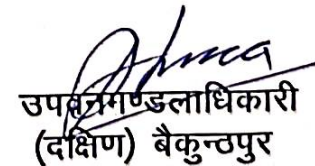 उपवनमण्डलाधिकारी
(दक्षिण) बैकुन्ठपुर